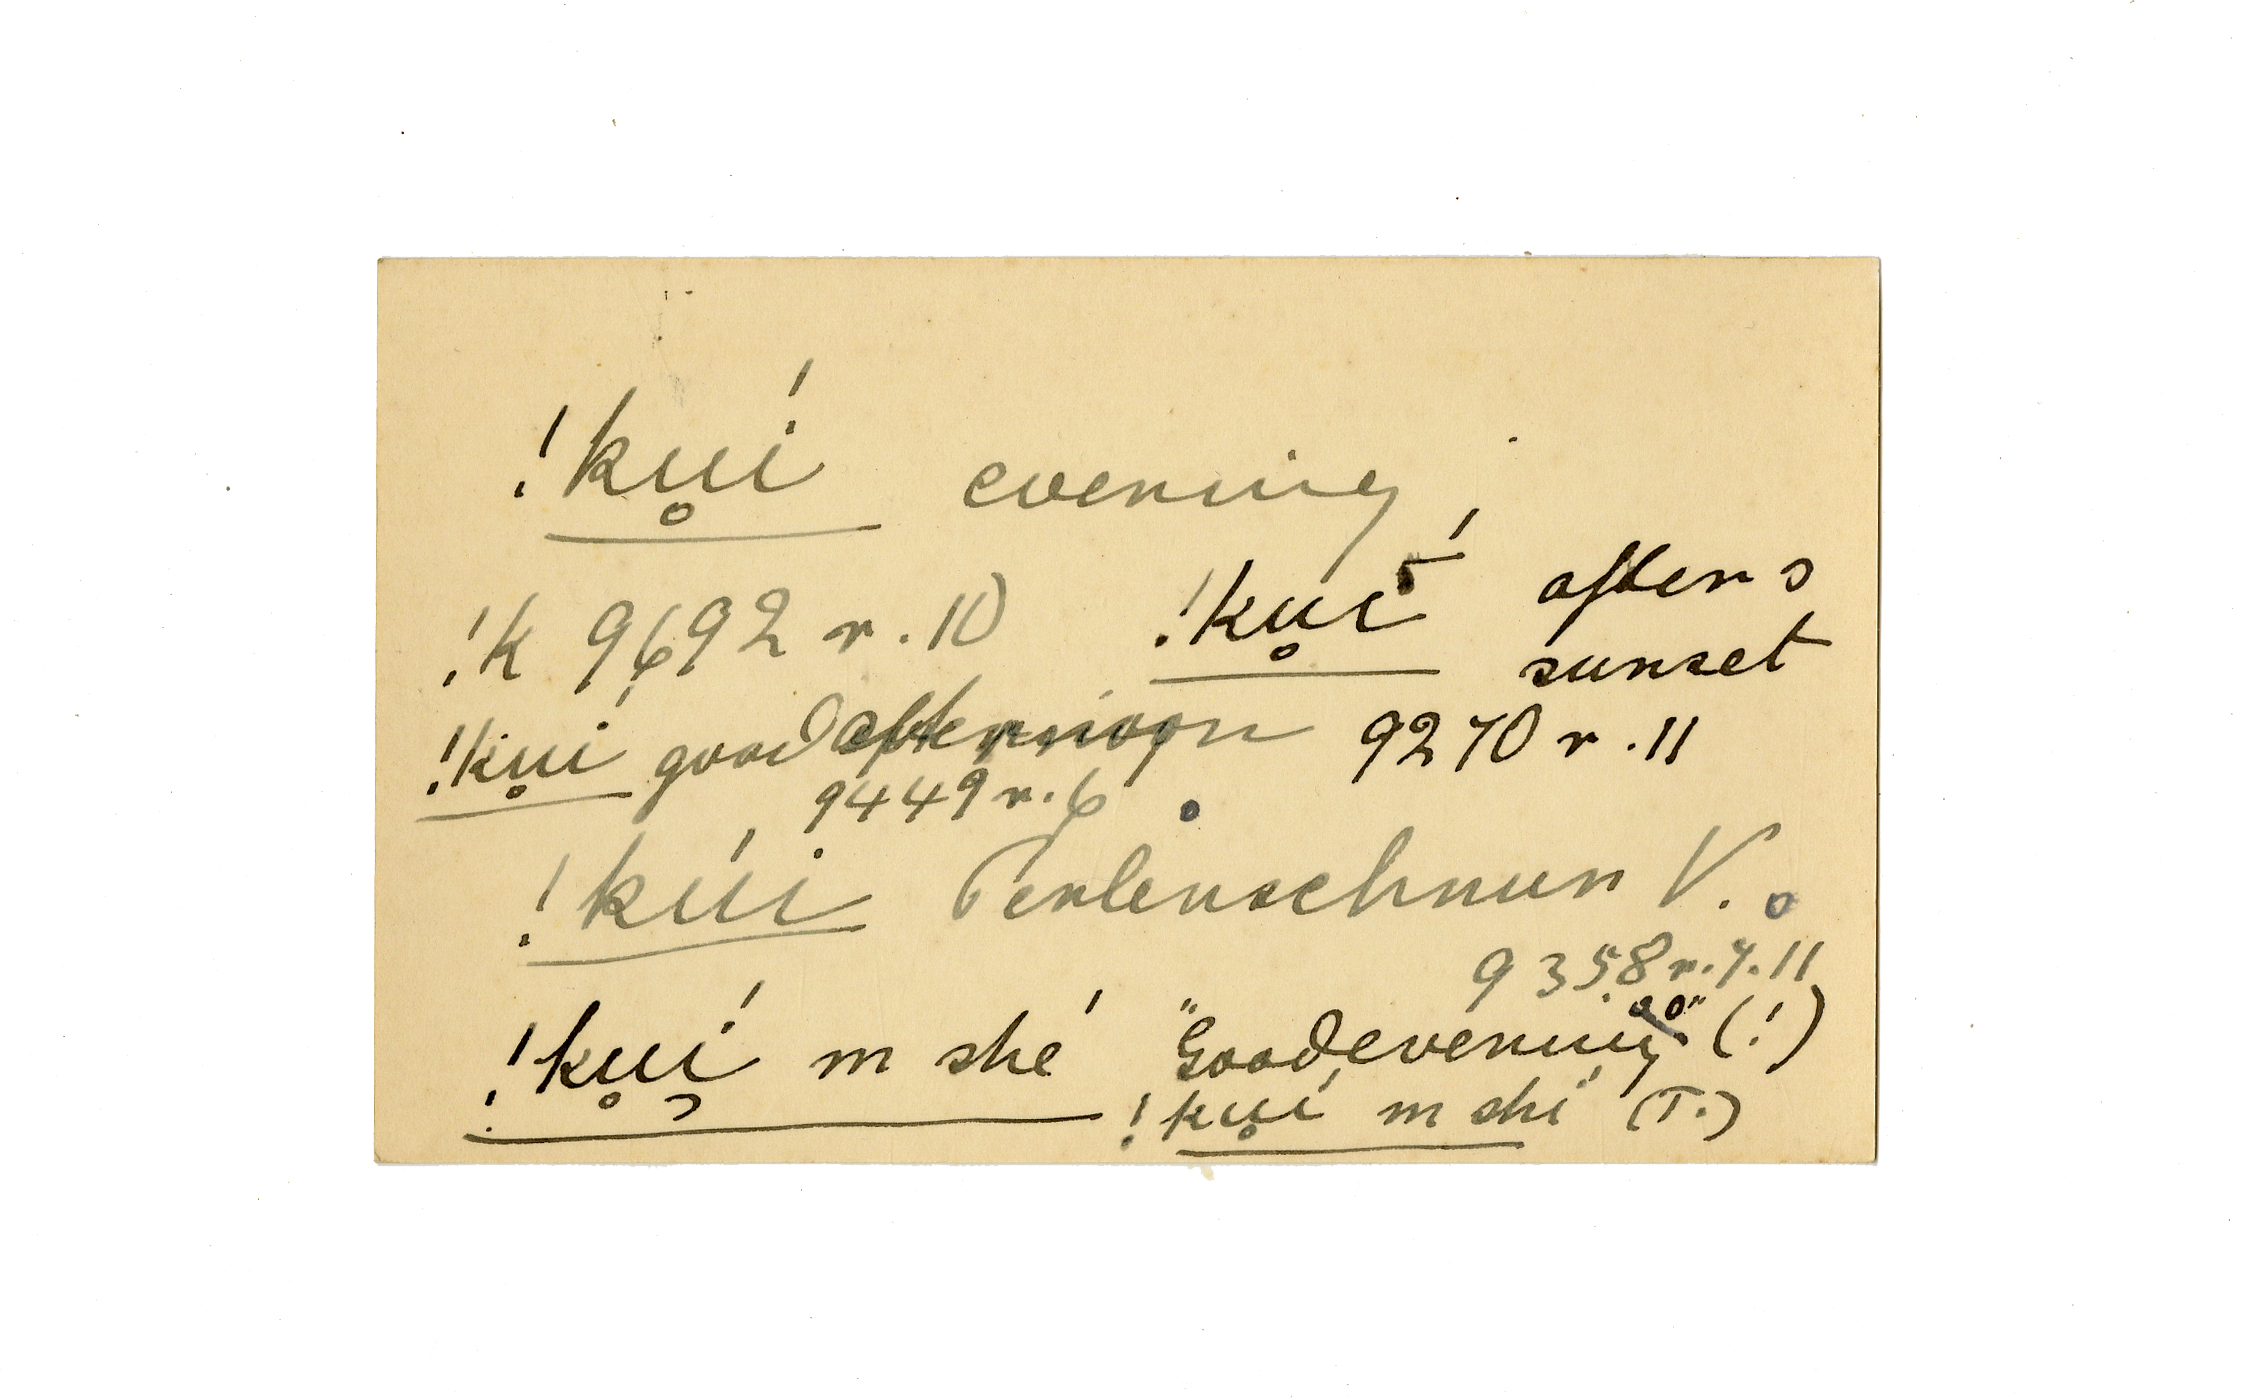 !ku̥í evening,
!k 9692 r. 10
!ku̥ī́ after s
sunset
!ku̥í good afternoon
9270 r. 11
9449 r. 6
!kúi Perlenschnur V.
9358 r. 7. 11
!ku̥í̹ m shé "Goodevening" (!)
!ku̥í m shí (T.)